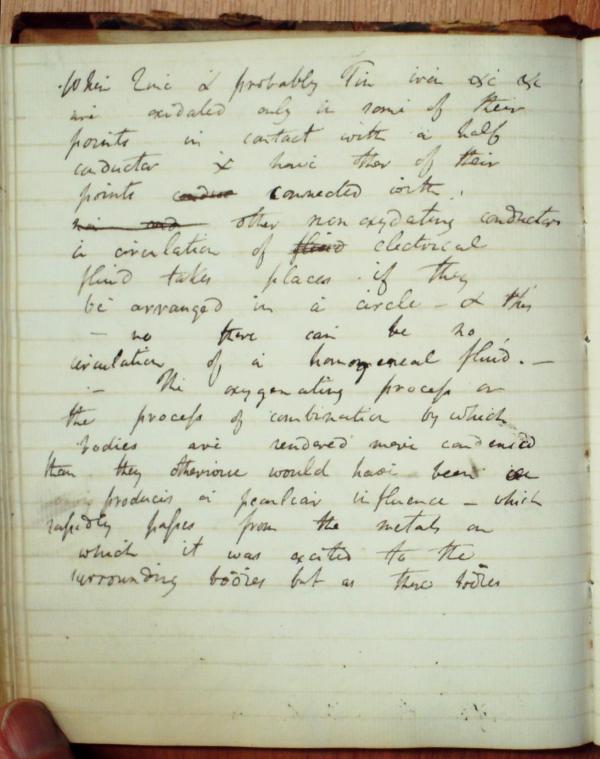 When Zinc & probably Tin iron &c &c
are oxidated only in some of their
points in contact with a half
conductor & have other of their
points conduc connected with
other non oxydating conductors
a circulation of fluid electrical
fluid takes places if they
be arranged in a circle - & this
- no there can be no
circulation of a homogeneal fluid. -
- The oxygenating process or
the process of combination by which
bodies are rendered more condensed
than they otherwise would have been
produces a peculiar influence - which
rapidly passes from the metals on
which it was excited to the
surrounding bodies but as these bodies